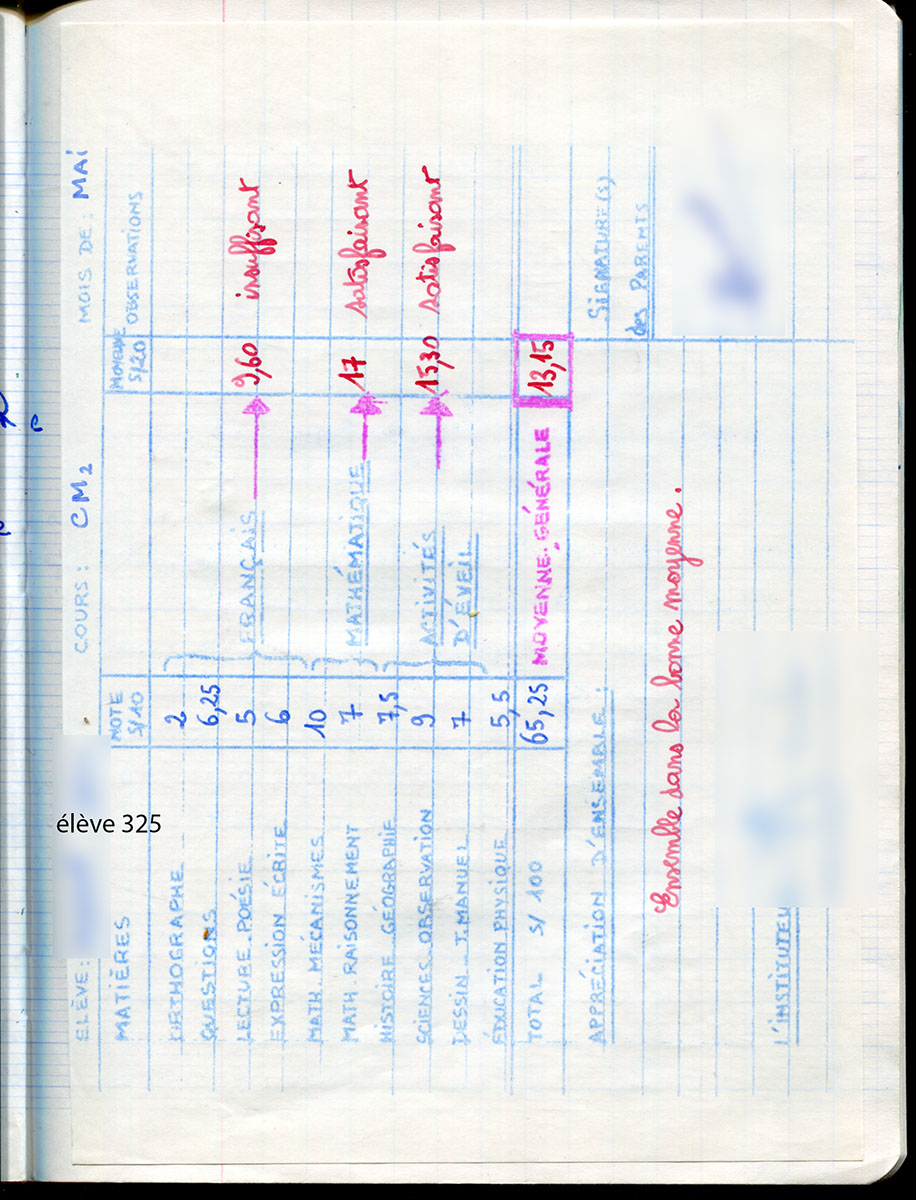 ELÈVE: élève 325 COURS: CM2 MOIS DE: MAI
MATIÈRES NOTE S/10 MOYENNE S/20 OBSERVATIONS
ORTHOGRAPHE 2
QUESTIONS 6,25
LECTURE. POÉSIE 5 FRANÇAIS 9,60 insuffisant
EXPRESSION ÉCRITE 6
MATH. MÉCANISMES 10
MATH. RAISONNEMENT 7 MATHÉMATIQUE 17 satisfaisant
HISTOIRE. GÉOGRAPHIE 7,5
SCIENCES. OBSERVATION 9 ACTIVITÉS 15,30 satisfaisant
DESSIN. T. MANUEL 7 D'ÉVEIL
ÉDUCATION PHYSIQUE 5,5
TOTAL S/ 100 65,25 MOYENNE. GÉNÉRALE 13,15
APPRÉCIATION D'ENSEMBLE: SIGNATURE(S)
des PARENTS
Ensemble dans la bonne moyenne.
L'INSTITUTEU